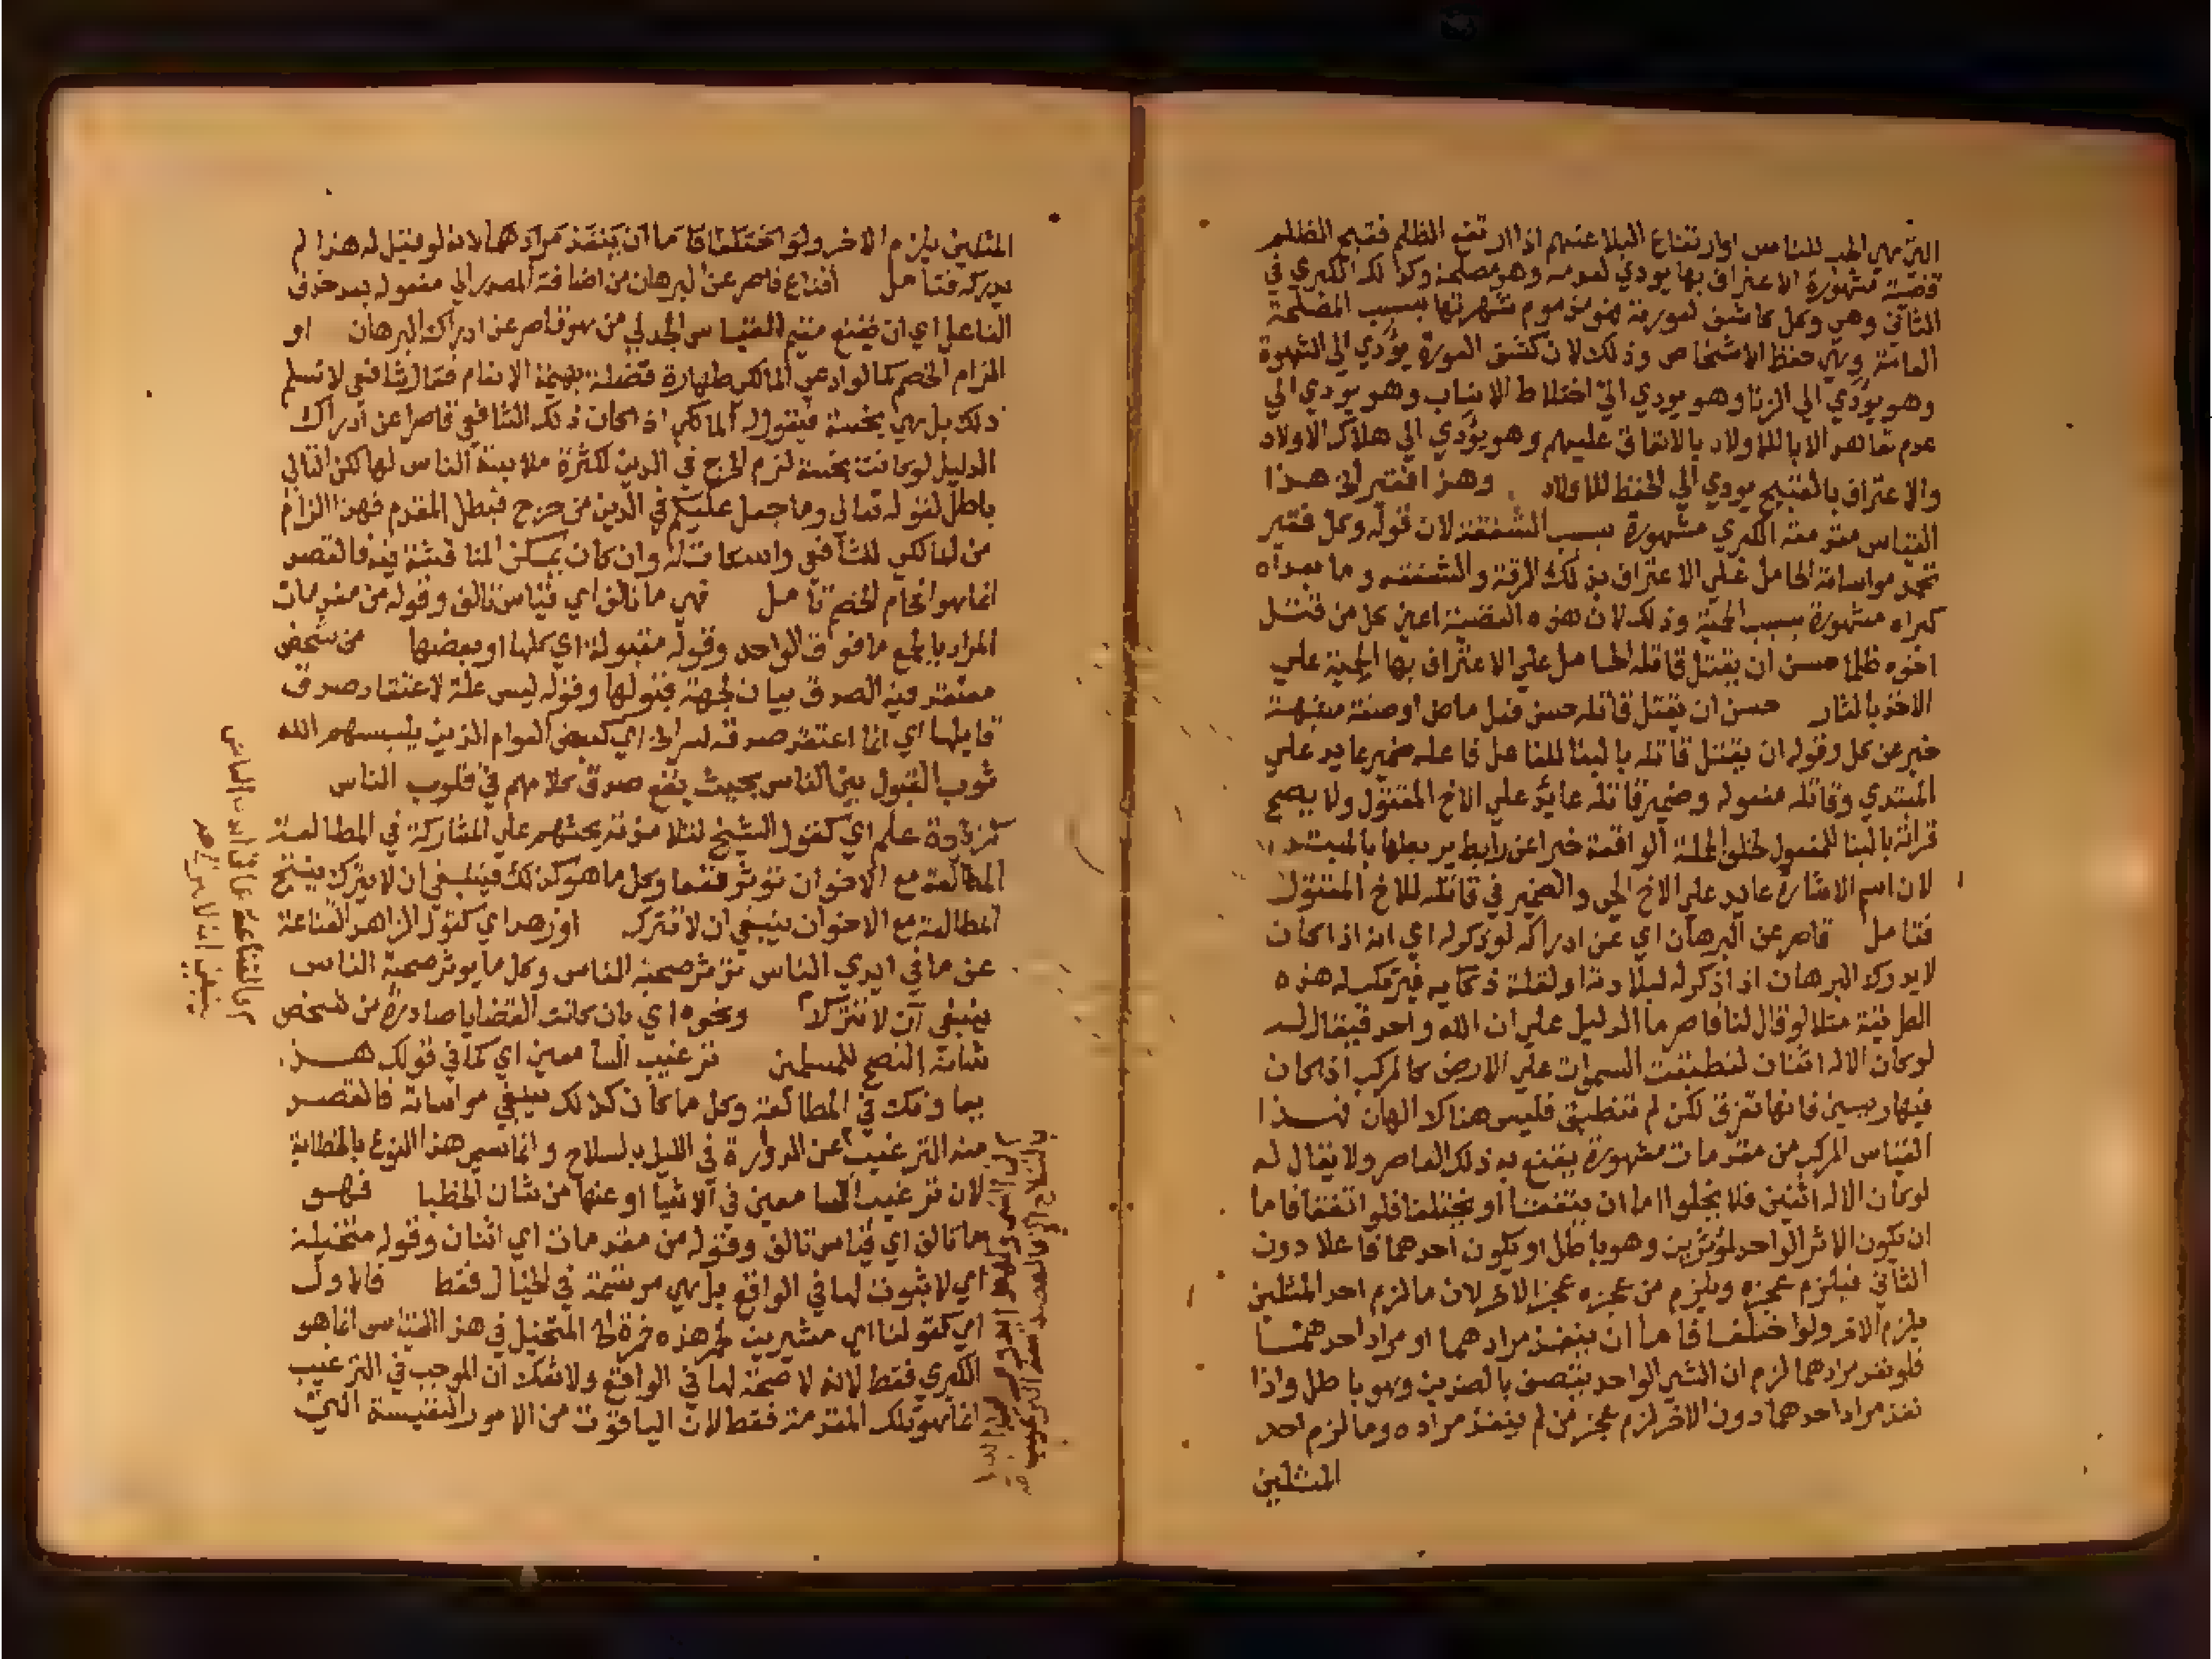 التي هي الحب للناس اوارتفاع البلا عنهم اذا ارتفع الظلم فقبح الظلم
قضية مشهورة الاعتراف بها يودي لعدمه وهو مصلحة وكذلك الكبري في
الثاني وهي وكل كاشف لعورته مذموم شهرتها بسبب المصلحة
العامة وهي حفظ الاشخاص وذلك لان كشف العورة يؤدي الي الشهوة
وهو يؤدي الي الزنا وهو يودي الي اختلاط الانساب وهو يودي الي
عدم تعاهد الابا للاولاد بالانفاق عليهم وهو يؤدي الي هلاك الاولاد
والاعتراف بالقبح يودي الي الحفظ للاولاد وهذا فقير الخ هذا
القياس مقدمته الكبري مشهورة بسبب الشفقة لان قوله وكل فقير
تحمد مواساته الحامل علي الاعتراف بذلك الرقة والشفقة وما بعداه
كبراه مشهورة بسبب الحمية وذلك لان هذه القضية اعني كل من قتل
اخوه ظلما حسن ان يقتل قاتله الحامل علي الاعتراف بها الحمية علي
الاخذ بالثار حسن ان يقتل قاتله حسن فعل ماض او صفة مشبهة
خبر عن كل وقوله ان يقتل قاتله بالبنا للفاعل فاعله ضمير عايد علي
المبتدي وقاتله مفعوله وضمير قاتله عايد علي الاخ المقتول ولا يصح
قراته بالبنا للمفعول لخلو الجملة الواقعة خبرا عن رابط يربطها بالمبتد
لان اسم الاشارة عايد علي الاخ الحي والضمير في قاتله للاخ المقتول
فتامل قاصر عن البرهان اي عن ادراكه لو ذكر له اي انه اذا كان
لا يدرك البرهان اذا ذكر له لبلادته او لقلة ذكايه فيركب له هذه
الطريقة مثلا لو قال لنا قاصر ما الدليل علي ان الله واحد فيقال له
لو كان الاله اثنان لنطبقت السموات علي الارض كالمركب اذا كان
فيها ريسين فانها تغرق لكن لم تنطبق فليس هناك الاهان فهذا
القياس المركب من مقدمات مشهورة يقنع به ذلك القاصر ولا يقال له
لو كان الاله اثنين فلا يخلوا اما ان يتفقا او يختلفا فلو اتفقا فاما
ان يكون الاثر الواحد لمؤثرين وهو باطل او يكون احدهما فاعلا دون
الثاني فيلزم عجزه ويلزم من عجزه عجز الاخر لان ما لزم احد المثلين
يلزم الاخر ولو اختلفا فاما ان ينفذ مرادهما او مراد احدهما
فلو نفذ مرادهما لزم ان الشي الواحد يتصف بالضدين وهو باطل واذا
نفذ مراد احدهما دون الاخر لزم عجز من لم ينفذ مراده وما لزم احد
المثلين
المثلين يلزم الاخر ولو اختلفا فاما ان ينفذ مرادهما لانه لو قيل له هذا لم
يدركه فتامل اقناع قاصر عن البرهان من اضافة المصدر الي مفعوله بعد حذف
الفاعل اي ان يقنع مقيم القياس الجدلي من هو قاصر عن ادراك البرهان او
الزام الخصم كما لو ادعي المالكي طهارة فضلة بهيمة الانعام فقال شافعي لا نسلم
ذلك بل هي نجسة فيقول له المالكي اذا كان ذلك الشافعي قاصرا عن ادراك
الدليل لو كانت نجسة لزم الحرج في الدين لكثرة ملابسة الناس لها لكن التالي
باطل لقوله تعالي وما جعل عليكم في الدين من حرج فبطل المقدم فهذا الزام
من المالكي للشافعي واسكات له وان كان يمكن المناقشة فيه فالقصد
انما هو افحام الخصم تامل فهي ما تالف اي قياس تالف وقوله من مقدمات
المراد بالجمع ما فوق الواحد وقوله مقبولة اي كلها او بعضها من شخص
معتقد فيه الصدق بيان لجهة قبولها وقوله ليس علة لاعتقاد صدق
قايلها اي انما اعتقد صدقه لسر الخ اي كبعض العوام الذين يلبسهم الله
ثوب القبول بين الناس بحيث يقع صدق كلامهم في قلوب الناس
كزيادة علم اي كقول الشيخ لتلامذته يحثهم علي المشاركة في المطالعة
المطالعة مع الاخوان تؤثر نفعا وكل ما هو كذلك فينبغي ان لا يترك ينتج
المطالعة مع الاخوان ينبغي ان لا تترك او زهد اي كقول الزاهد القناعة
عن ما في ايدي الناس تؤثر محبة الناس وكل ما يوثر محبة الناس
ينبغي ان لا تترك ونحوه اي بان كانت القضايا صادرة من شخص
شانه النصح للمسلمين ترغيب السامعين اي كما في قولك هذا
بما وفك في المطالعة وكل ما كان كذلك ينبغي مواساته فالقصد
منه الترغيب عن المدوارة في الليل بسلاح وانما سمي هذا النوع بالخطابة
لان ترغيب السامعين في الاشيا او عنها من شان الخطبا فهو
ما تالف اي قياس تالف وقوله من مقدمات اي اثنان وقوله متخيلة
اي لا ثبوت لها في الواقع بل هي مرتسمة في الخيال فقط فالاول
اي كقولنا اي مشيرين لخمر هذه خمرة الخ المتخيل في هذا القياس انما هو
الكبري فقط لانه لا صحة لها في الواقع ولا شك ان الموجب في الترغيب
انما هو تلك المقدمة فقط لان الياقوت من الامور النفيسة التي